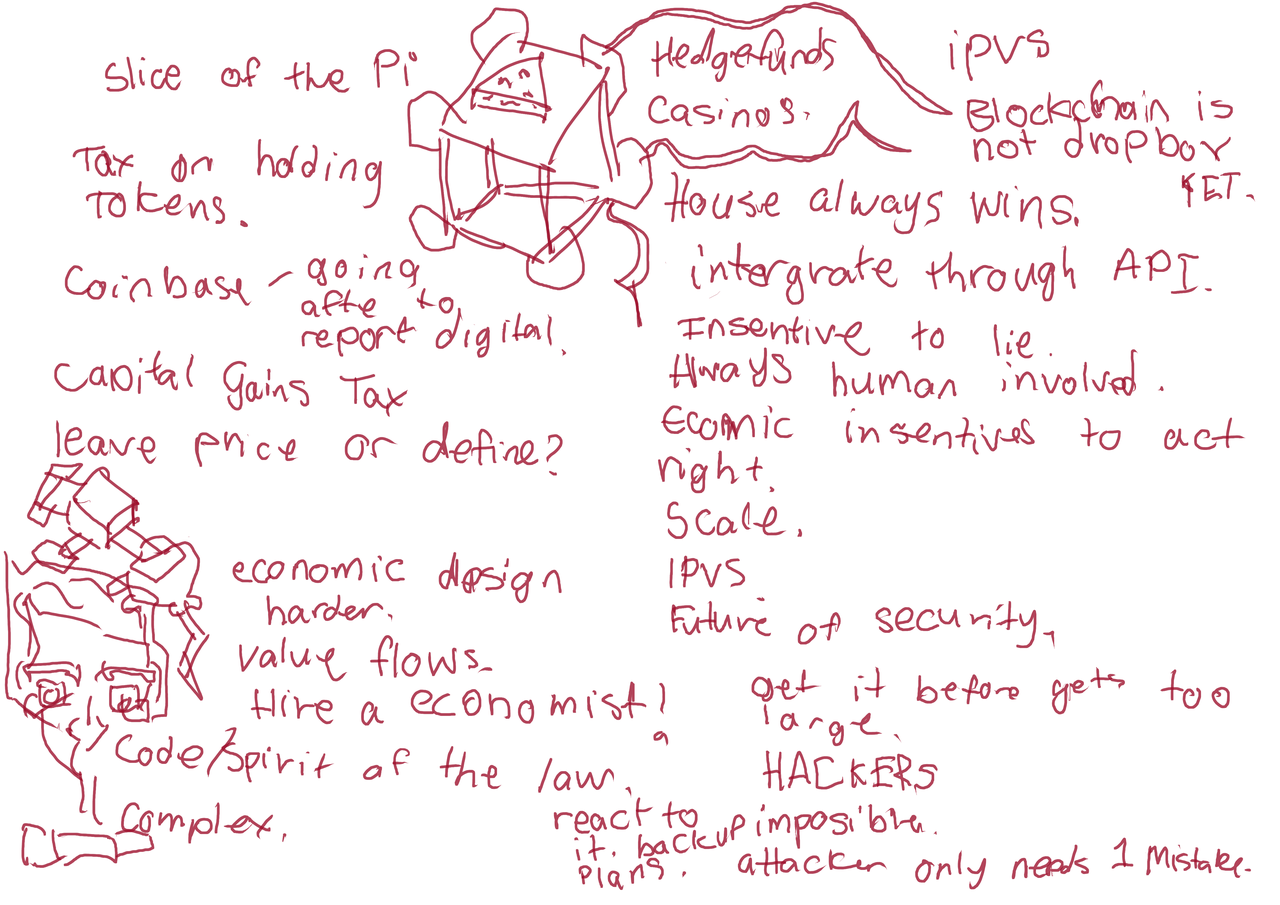 Slice of the Pi
Tax on holding
Tokens.
Coinbase - going
afte to
report digital.
Capital Gains Tax
leave price or define?
economic design
harder.
Value flows.
Hire a economist!
Code/spirit of the law.
Complex.
Hedgefunds
Casinos.
iPVS
Blockchain is
not dropbox
YET.
House always wins.
intergrate through API.
Insentive to lie.
Always human involved.
Ecomic insentives to act
right.
Scale.
IPVS
Future of security,
get it before gets too
large.
HACKERS
react to imposible.
it. backup
plans. attacker only needs 1 Mistake.